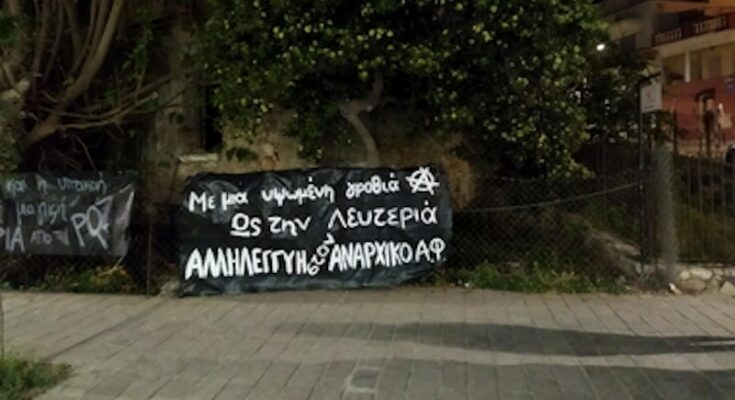 και η
ΡΙΑ ΑΠΟ ΤΗ
Με μια υψωμένη γροθιά Ⓐ
Ως την Λευτεριά
ΑΛΛΗΛΕΓΓΥΗ στον ΑΝΑΡΧΙΚΟ Α.Φ.